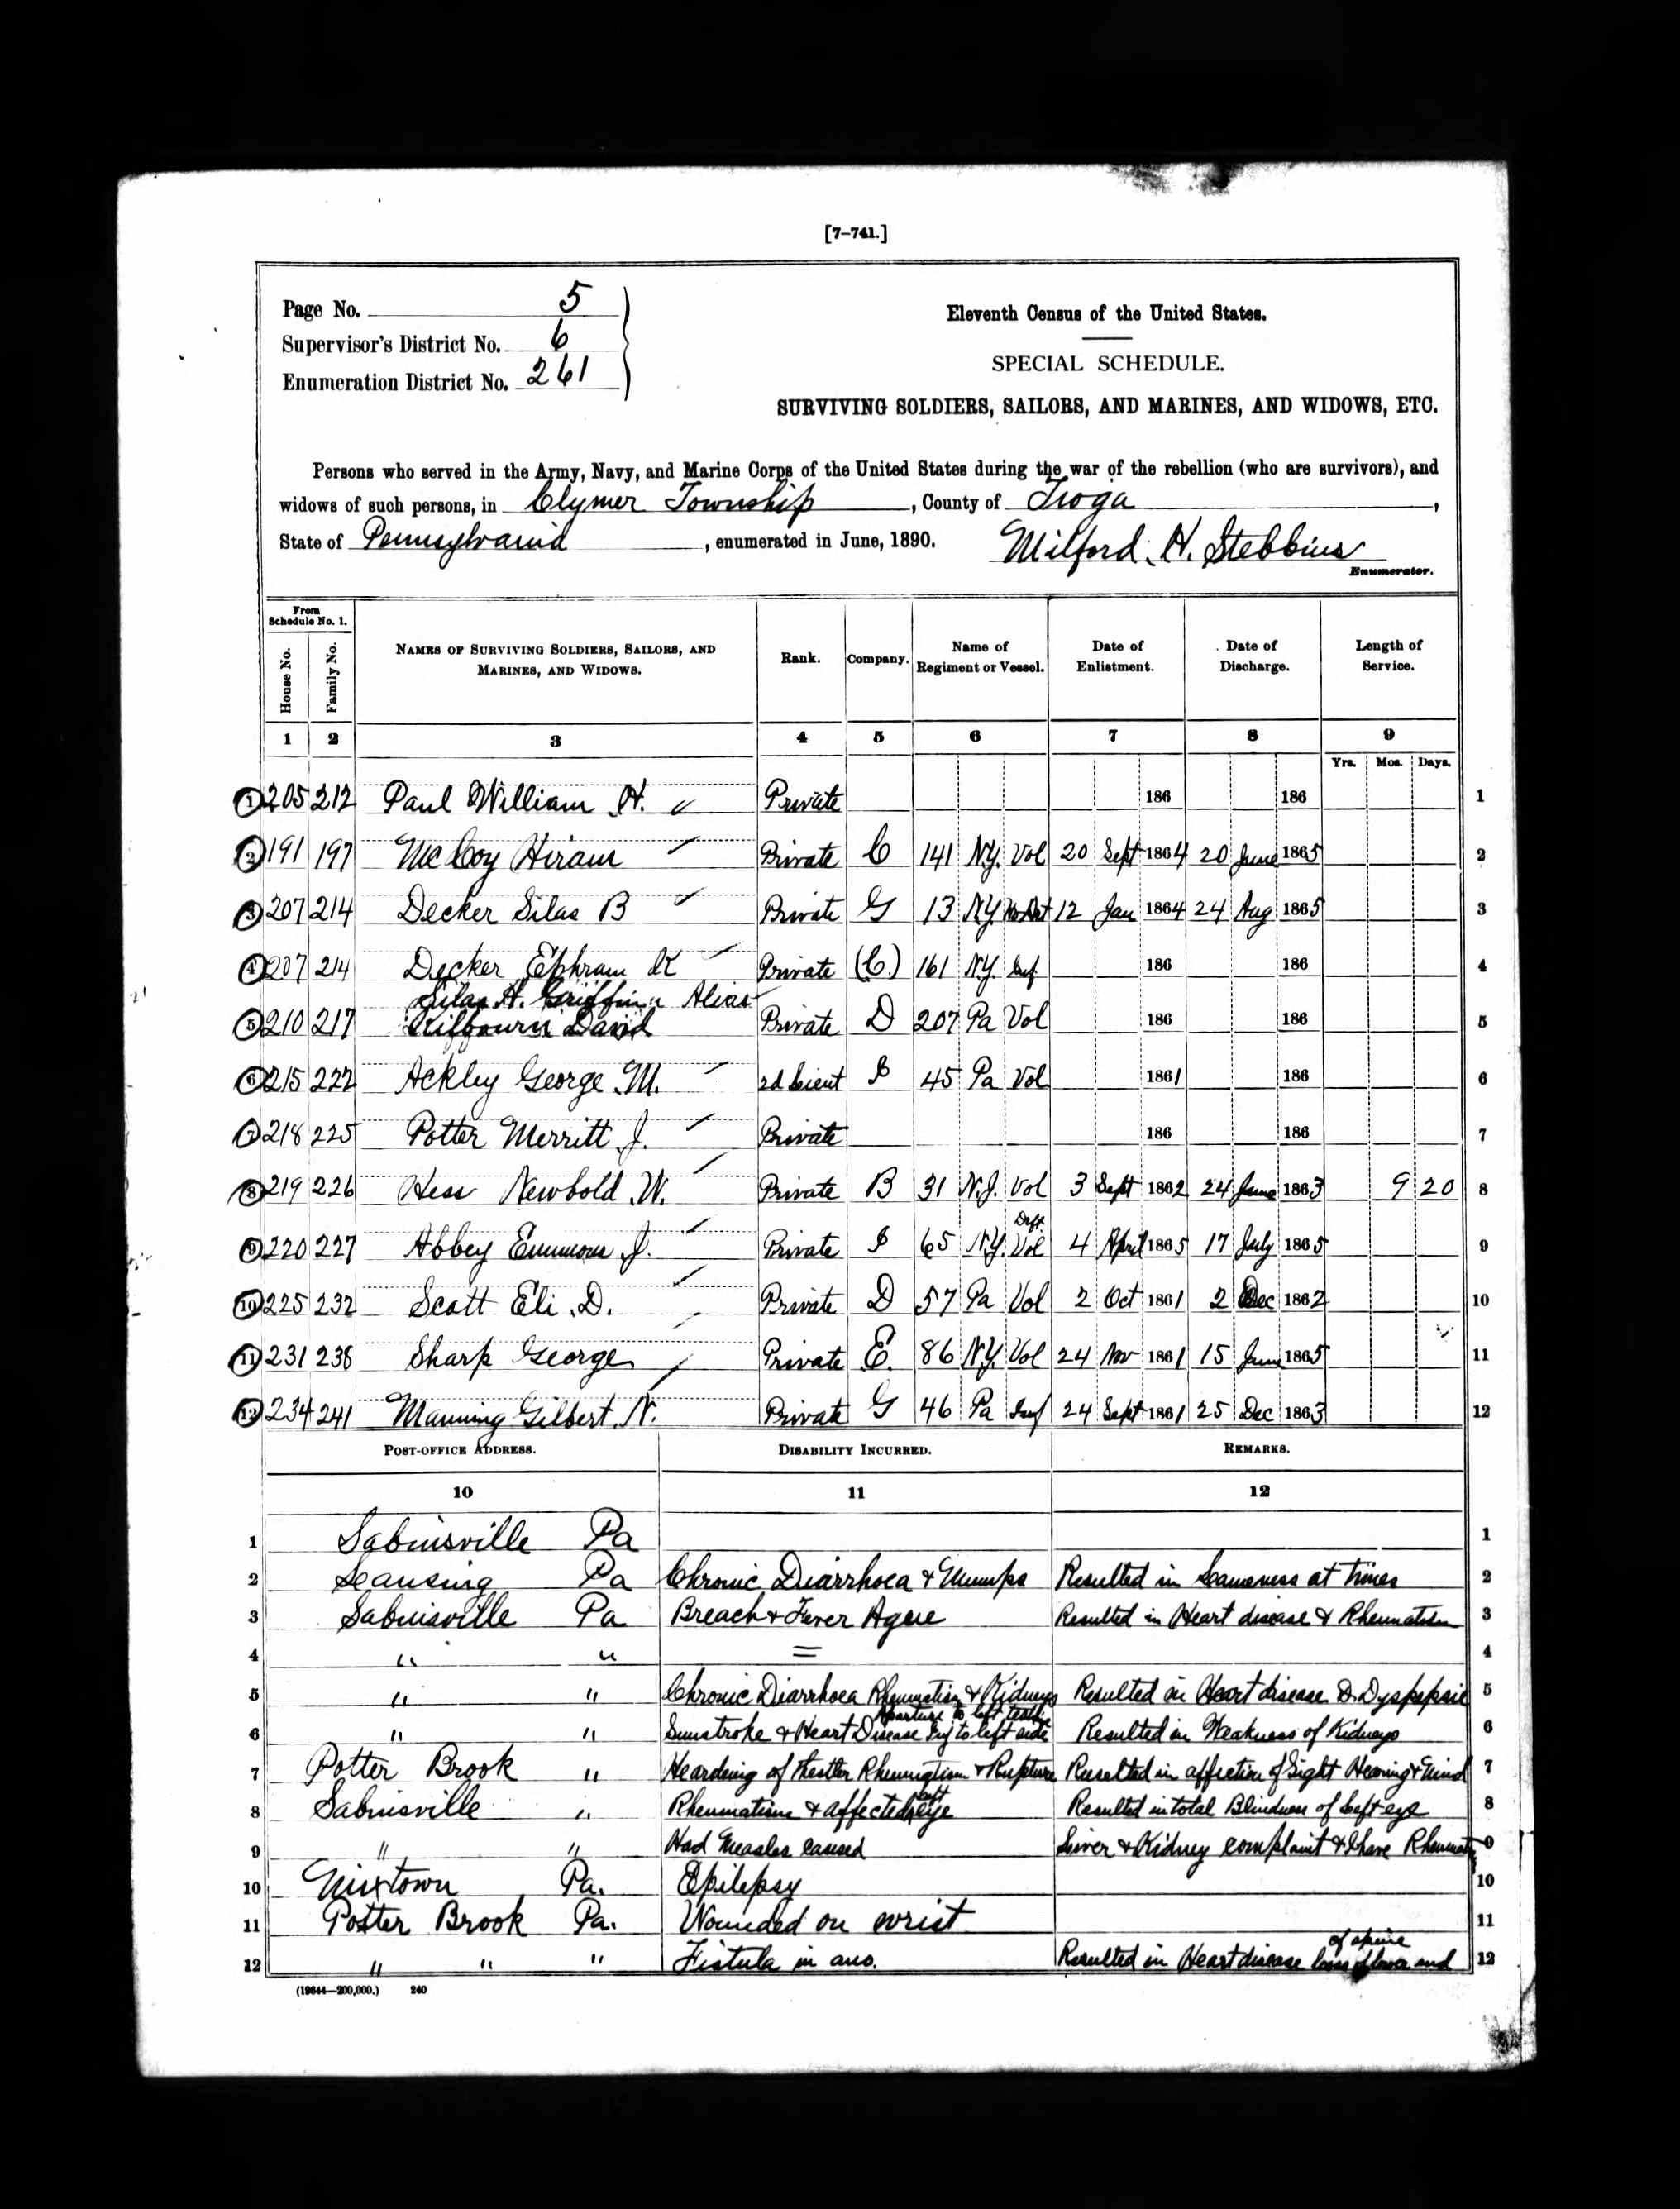 [7-741.]
Page No. 5
Supervisor's District No. 6
Enumeration District No. 261
Eleventh Census of the United States.
SPECIAL SCHEDULE.
SURVIVING SOLDIERS, SAILORS, AND MARINES, AND WIDOWS, ETC.
Persons who served in the Army, Navy, and Marine Corps of the United States during the war of the rebellion (who are survivors), and
widows of such persons, in Clymer Township, County of Tioga,
State of Pennsylvania, enumerated in June, 1890. Milford H. Stebbins
Enumerator.
From Schedule No. 1.
House No. Family No. NAMES OF SURVIVING SOLDIERS, SAILORS, AND MARINES, AND WIDOWS. Rank. Company. Name of Regiment or Vessel. Date of Enlistment. Date of Discharge. Length of Service.
1 2 3 4 5 6 7 8 9
Yrs. Mos. Days.
1 205 212 Paul William H. " Private 186 186 1
2 191 197 McCoy Hiram Private C 141 N.Y. Vol 20 Sept 1864 20 June 1865 2
3 207 214 Decker Silas B Private G 13 N.Y. 12 Jan 1864 24 Aug 1865 3
4 207 214 Decker Ephram K Private (C.) 161 N.Y. Inf. 186 186 4
Silas H. Griffin Alias
5 210 217 Kilbourn David Private D 207 Pa Vol 186 186 5
6 215 222 Ackley George M. 2d Lieut I 45 Pa Vol 1861 186 6
7 218 225 Potter Merritt J. Private 186 186 7
8 219 226 Hess Newbold W. Private B 31 N.J. Vol 3 Sept 1862 24 June 1863 9 20 8
9 220 227 Abbey Emmons J. Private I 65 N.Y. Vol 4 April 1865 17 July 1865 9
10 225 232 Scott Eli D. Private D 57 Pa Vol 2 Oct 1861 2 Dec 1862 10
11 231 238 Sharp George Private E. 86 N.Y. Vol 24 Nov 1861 15 June 1865 11
12 234 241 Manning Gilbert N. Private G 46 Pa Inf 24 Sept 1861 25 Dec 1863 12
POST-OFFICE ADDRESS. DISABILITY INCURRED. REMARKS.
10 11 12
1 Sabinsville Pa 1
2 Leansing Pa Chronic Diarrhoea & Mumps Resulted in Lameness at times 2
3 Sabinsville Pa Breach & Fever Ague Resulted in Heart disease & Rheumatism 3
4 " " = 4
5 " " Chronic Diarrhoea Rheumatism & Kidneys Resulted in Heart disease & Dyspepsia 5
to left
6 " " Sunstroke & Heart Disease Inj to left side Resulted in Weakness of Kidneys 6
7 Potter Brook " of Rheumatism & Rupture Resulted in affection of Sight Hearing & Mind 7
left
8 Sabinsville " Rheumatism & affected eye Resulted in total Blindness of Left eye 8
9 " " Had Measles caused Liver & Kidney complaint & have 9
10 Mixtown Pa. Epilepsy 10
11 Potter Brook Pa. Wounded on wrist 11
of spine
12 " " " Fistula in ano. Resulted in Heart disease lower end 12
(19644—200,000.) 240